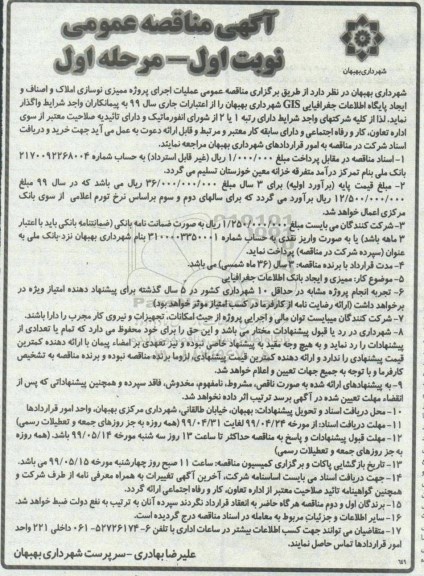 آگهی مناقصه عمومی
نوبت اول – مرحله اول
شهرداری بهبهان
شهرداری بهبهان در نظر دارد از طریق برگزاری مناقصه عمومی عملیات اجرای پروژه ممیزی نوسازی املاک و اصناف و
ایجاد پایگاه اطلاعات جغرافیایی GIS شهرداری بهبهان را از اعتبارات جاری سال ۹۹ به پیمانکاران واجد شرایط واگذار
نماید. لذا از کلیه شرکتهای واجد شرایط دارای رتبه ۱ یا ۲ از شورای انفورماتیک و دارای تائیدیه صلاحیت معتبر از سوی
اداره تعاون، کار و رفاه اجتماعی و دارای سابقه کار معتبر و مرتبط و قابل ارائه دعوت به عمل می آید جهت خرید و دریافت
اسناد شرکت در مناقصه به امور قراردادهای شهرداری بهبهان مراجعه نمایند.
۱- اسناد مناقصه در مقابل پرداخت مبلغ ۱/۰۰۰/۰۰۰ ریال (غیر قابل استرداد) به حساب شماره ۲۱۷۰۰۹۲۲۶۸۰۰۴
بانک ملی بنام تمرکز درآمد متفرقه خزانه معین خوزستان تسلیم می گردد.
۲- مبلغ قیمت پایه (برآورد اولیه) برای ۳ سال مبلغ ۳۶/۰۰۰/۰۰۰/۰۰۰ ریال می باشد که در سال ۹۹ مبلغ
۱۲/۵۰۰/۰۰۰/۰۰۰ ریال برآورد می گردد که برای سالهای دوم و سوم براساس نرخ تورم اعلامی از سوی بانک
مرکزی اعمال خواهد شد.
۳- شرکت کنندگان می بایست مبلغ ۱/۲۵۰/۰۰۰/۰۰۰ ریال به صورت ضمانت نامه بانکی (ضمانتنامه بانکی باید با اعتبار
۳ ماهه باشد) یا به صورت واریز نقدی به حساب شماره ۳۱۰۰۰۰۳۳۵۰۰۰۱ بنام شهرداری بهبهان نزد بانک ملی به
عنوان (سپرده شرکت در مناقصه) پرداخت نماید.
۴- مدت قرارداد با برنده مناقصه: ۳ سال (۳۶ ماه شمسی) می باشد.
۵- موضوع کار: ممیزی و ایجاد بانک اطلاعات جغرافیایی
۶- تجربه انجام پروژه مشابه در حداقل ۱۰ شهرداری کشور در ۵ سال گذشته برای پیشنهاد دهنده امتیاز ویژه در
برخواهد داشت (ارائه رضایت نامه از کارفرما در کسب امتیاز موثر خواهد بود)
۷- شرکت کنندگان میبایست توان مالی و اجرایی پروژه از حیث امکانات، تجهیزات و نیروی کار مجرب را دارا باشند.
۸- شهرداری در رد یا قبول پیشنهادات مختار می باشد و این حق را برای خود محفوظ می دارد که تمام یا تعدادی از
پیشنهادات را رد نماید و به هیچ وجه مقید به پیشنهاد خاصی نبوده و نیز تعهدی بر امضاء پیمان با ارائه دهنده کمترین
قیمت پیشنهادی را ندارد و ارائه دهنده کمترین قیمت پیشنهادی، لزوما برنده مناقصه نبوده و برنده مناقصه به تشخیص
کارفرما و با توجه به جمیع جهات تعیین و اعلام خواهد شد.
۹- به پیشنهادهای ارائه شده به صورت ناقص، مشروط، نامفهوم، مخدوش، فاقد سپرده و همچنین پیشنهاداتی که پس از
انقضاء مهلت تعیین شده در آگهی برسد ترتیب اثر داده نخواهد شد.
۱۰- محل دریافت اسناد و تحویل پیشنهادات: بهبهان، خیابان طالقانی، شهرداری مرکزی بهبهان، واحد امور قراردادها
۱۱- مهلت دریافت اسناد: از مورخه ۹۹/۰۴/۲۴ لغایت ۹۹/۰۴/۳۱ (همه روزه به جز روزهای جمعه و تعطیلات رسمی)
۱۲- مهلت قبول پیشنهادات و پاسخ به مناقصه حداکثر تا ساعت ۱۳ روز سه شنبه مورخه ۹۹/۰۵/۱۴ باشد. (همه روزه
به جز روزهای جمعه و تعطیلات رسمی)
۱۳- تاریخ بازگشایی پاکات و برگزاری کمیسیون مناقصه: ساعت ۱۱ صبح روز چهارشنبه مورخه ۹۹/۰۵/۱۵ می باشد.
۱۴- جهت دریافت اسناد می بایست اساسنامه شرکت، آخرین آگهی تغییرات به همراه معرفی نامه از طرف شرکت و
همچنین گواهینامه تائید صلاحیت معتبر از اداره تعاون، کار و رفاه اجتماعی ارائه گردد.
۱۵- برندگان اول و دوم مناقصه هرگاه حاضر به انعقاد قرارداد نگردند سپرده آنان به ترتیب به نفع دولت ضبط خواهد شد.
۱۶- سایر اطلاعات و جزئیات مربوط به معامله در اسناد مناقصه درج گردیده است.
۱۷- متقاضیان می توانند جهت کسب اطلاعات بیشتر در ساعات اداری با تلفن ۶-۵۲۷۲۶۱۷۴-۰۶۱ داخلی ۲۲۱ واحد
امور قراردادها تماس حاصل نمایند.
علیرضا بهادری - سرپرست شهرداری بهبهان